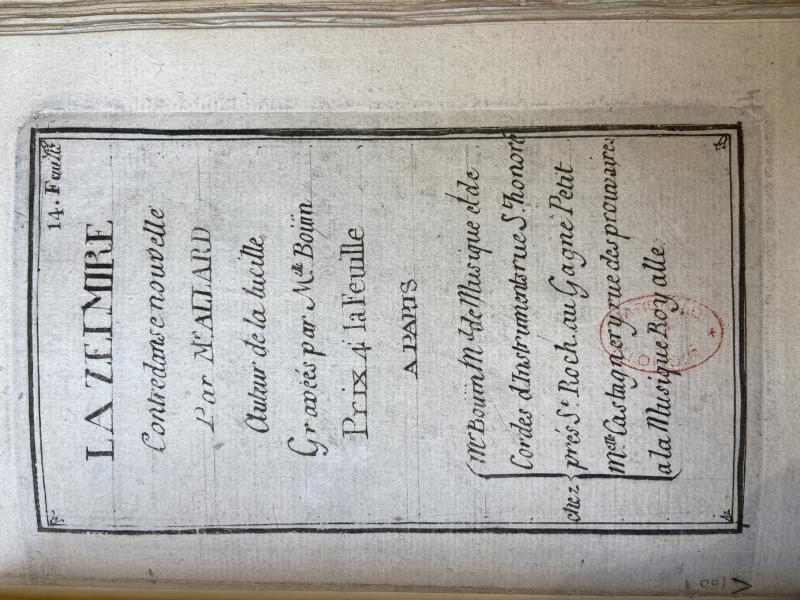 14. Feuille
LA ZELMIRE
Contredanse nouvelle
Par Mr. ALLARD
Auteur de la lucille
Gravées par Melle. Boüin
Prix 4s la Feuille
A PARIS
chez
Mr. Boüin Md. de Musique et de
Cordes d'Instruments rue St. honoré
prés St. Roch. au Gagne Petit
Melle Castagnery rue des prouvaires
a la Musique Roy alle.